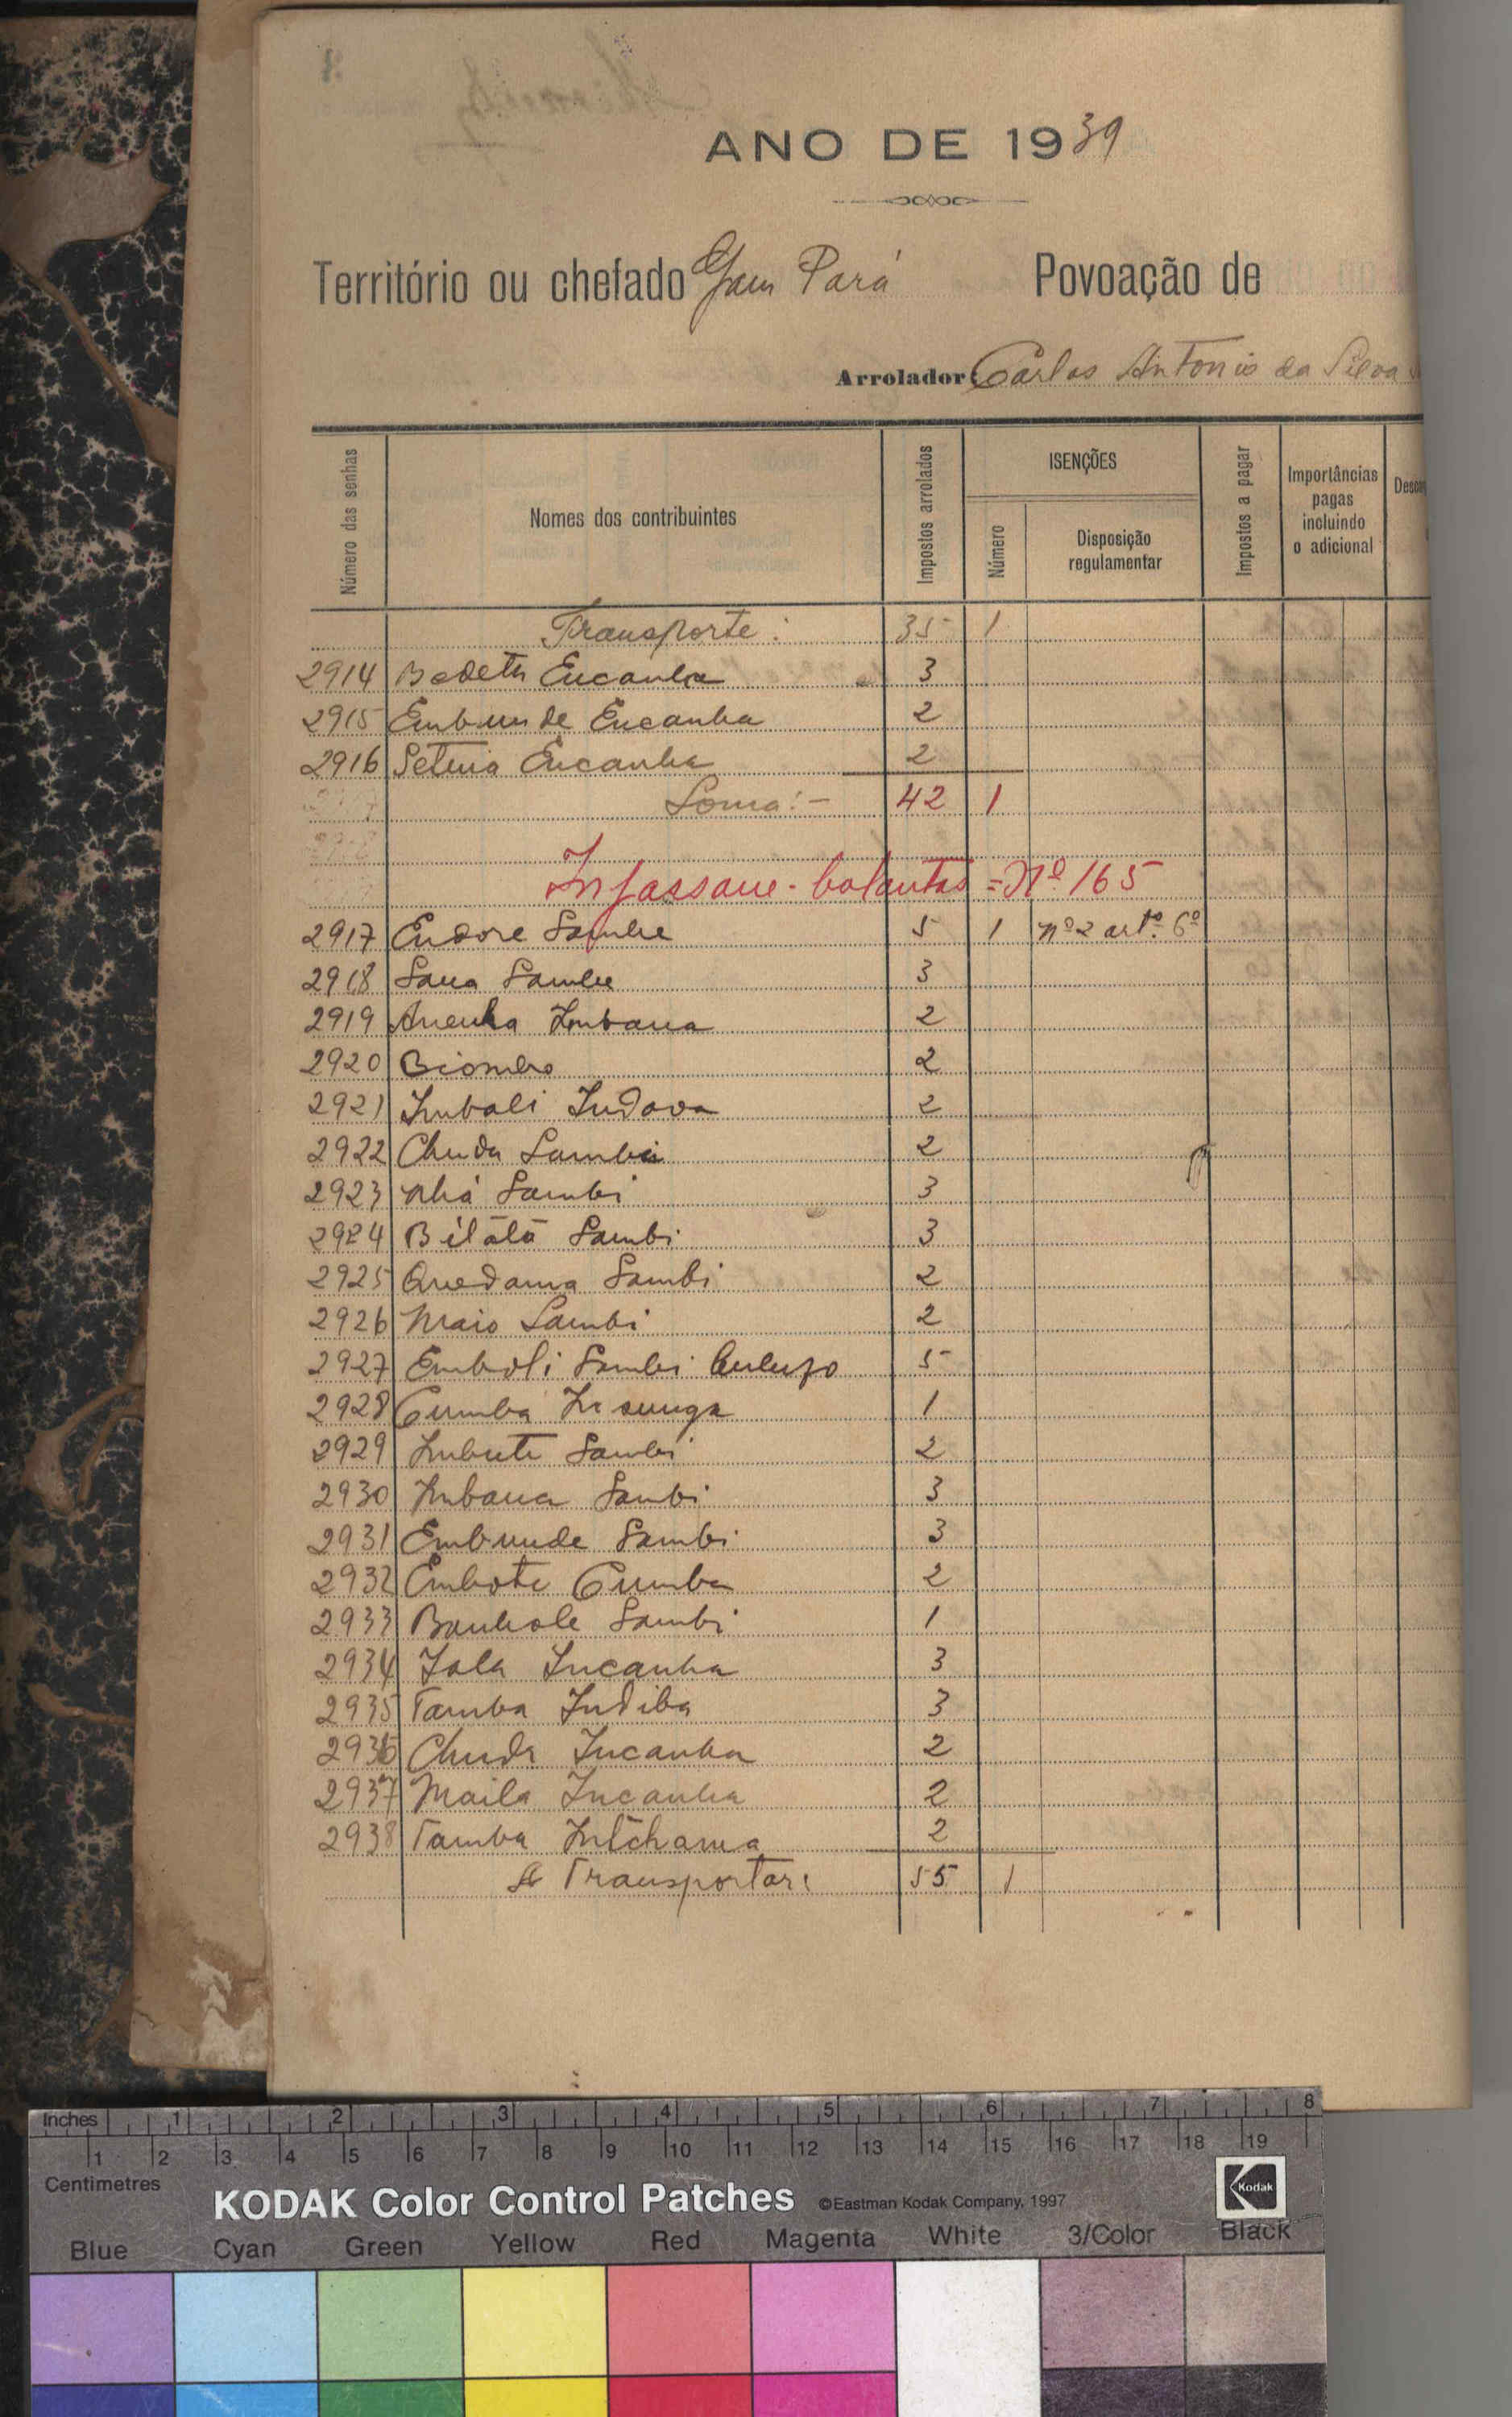 ANO DE 1939
Território ou chefado Gam Pará Povoação de
Arrolador: Carlos Antonio da Silva
Número das senhas
Nomes dos contribuintes
Impostos arrolados
ISENÇÕES
Número
Disposição regulamentar
Impostos a pagar
Importâncias pagas incluindo o adicional
Transporte: 35 1
2914 Bedeta Encanha 3
2915 Embunde Encanha 2
2916 Encanha 2
Soma:- 42 1
Infassane-balantas = Nº 165
2917 Endore Sambe 5 1 nº 2 artº. 6º
2918 Sana Sambe 3
2919 Anenha Imbana 2
2920 Biombo 2
2921 Imbali Indava 2
2922 Chuda Sambi 2
2923 Nhá Sambi 3
2924 Bitátá Sambi 3
2925 Quedama Sambi 2
2926 Maio Sambi 2
2927 Emboli Sambi 5
2928 Cumba 1
2929 Imbute Sambi 2
2930 Imbana Sambi 3
2931 Embunde Sambi 3
2932 Embote Cumba 2
2933 Banhole Sambi 1
2934 Jala Incanha 3
2935 Tamba Indiba 3
2936 Chuda Incanha 2
2937 Maila Incanha 2
2938 Tamba Intchama 2
A Transportar: 55 1
Inches 1 2 3 4 5 6 7 8
1 2 3 4 5 6 7 8 9 10 11 12 13 14 15 16 17 18 19
Centimetres
KODAK Color Control Patches ©Eastman Kodak Company, 1997 Kodak
Blue Cyan Green Yellow Red Magenta White 3/Color Black